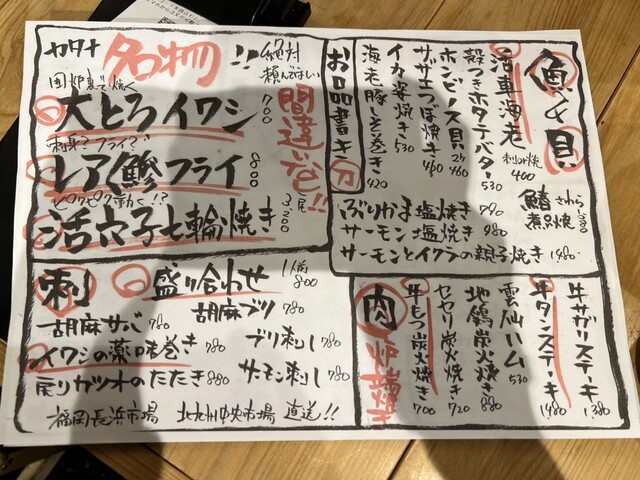 カタナ 名物!!
絶対頼んでほしい
間違いなし!!
囲炉裏で焼く
大とろイワシ 700
刺身?フライ?
レア鯵フライ 800
ピクピク動く!?
活穴子七輪焼き 1尾 3200
お品書き
魚と貝
活車海老 刺or焼 400
殻つきホタテバター 530
ホンビノス貝 2ケ 460
サザエつぼ焼き 460
イカ姿焼き 530
海老豚しそ巻き 420
鰆 さわら 煮or焼
ぶりかま塩焼き 790
サーモン塩焼き 980
サーモンとイクラの親子焼き 1480
刺
盛り合わせ 1人前 800
胡麻サバ 780
胡麻ブリ 780
イワシの薬味巻き 780
ブリ刺し 780
戻りカツオのたたき 880
サーモン刺し 780
福岡長浜市場 北九州中央市場 直送!!
肉
炉端焼き
牛サガリステーキ 1380
牛タンステーキ 1480
雲仙ハム 530
地鶏炭火焼き 880
セセリ炭火焼き 720
牛もつ炭火焼き 700